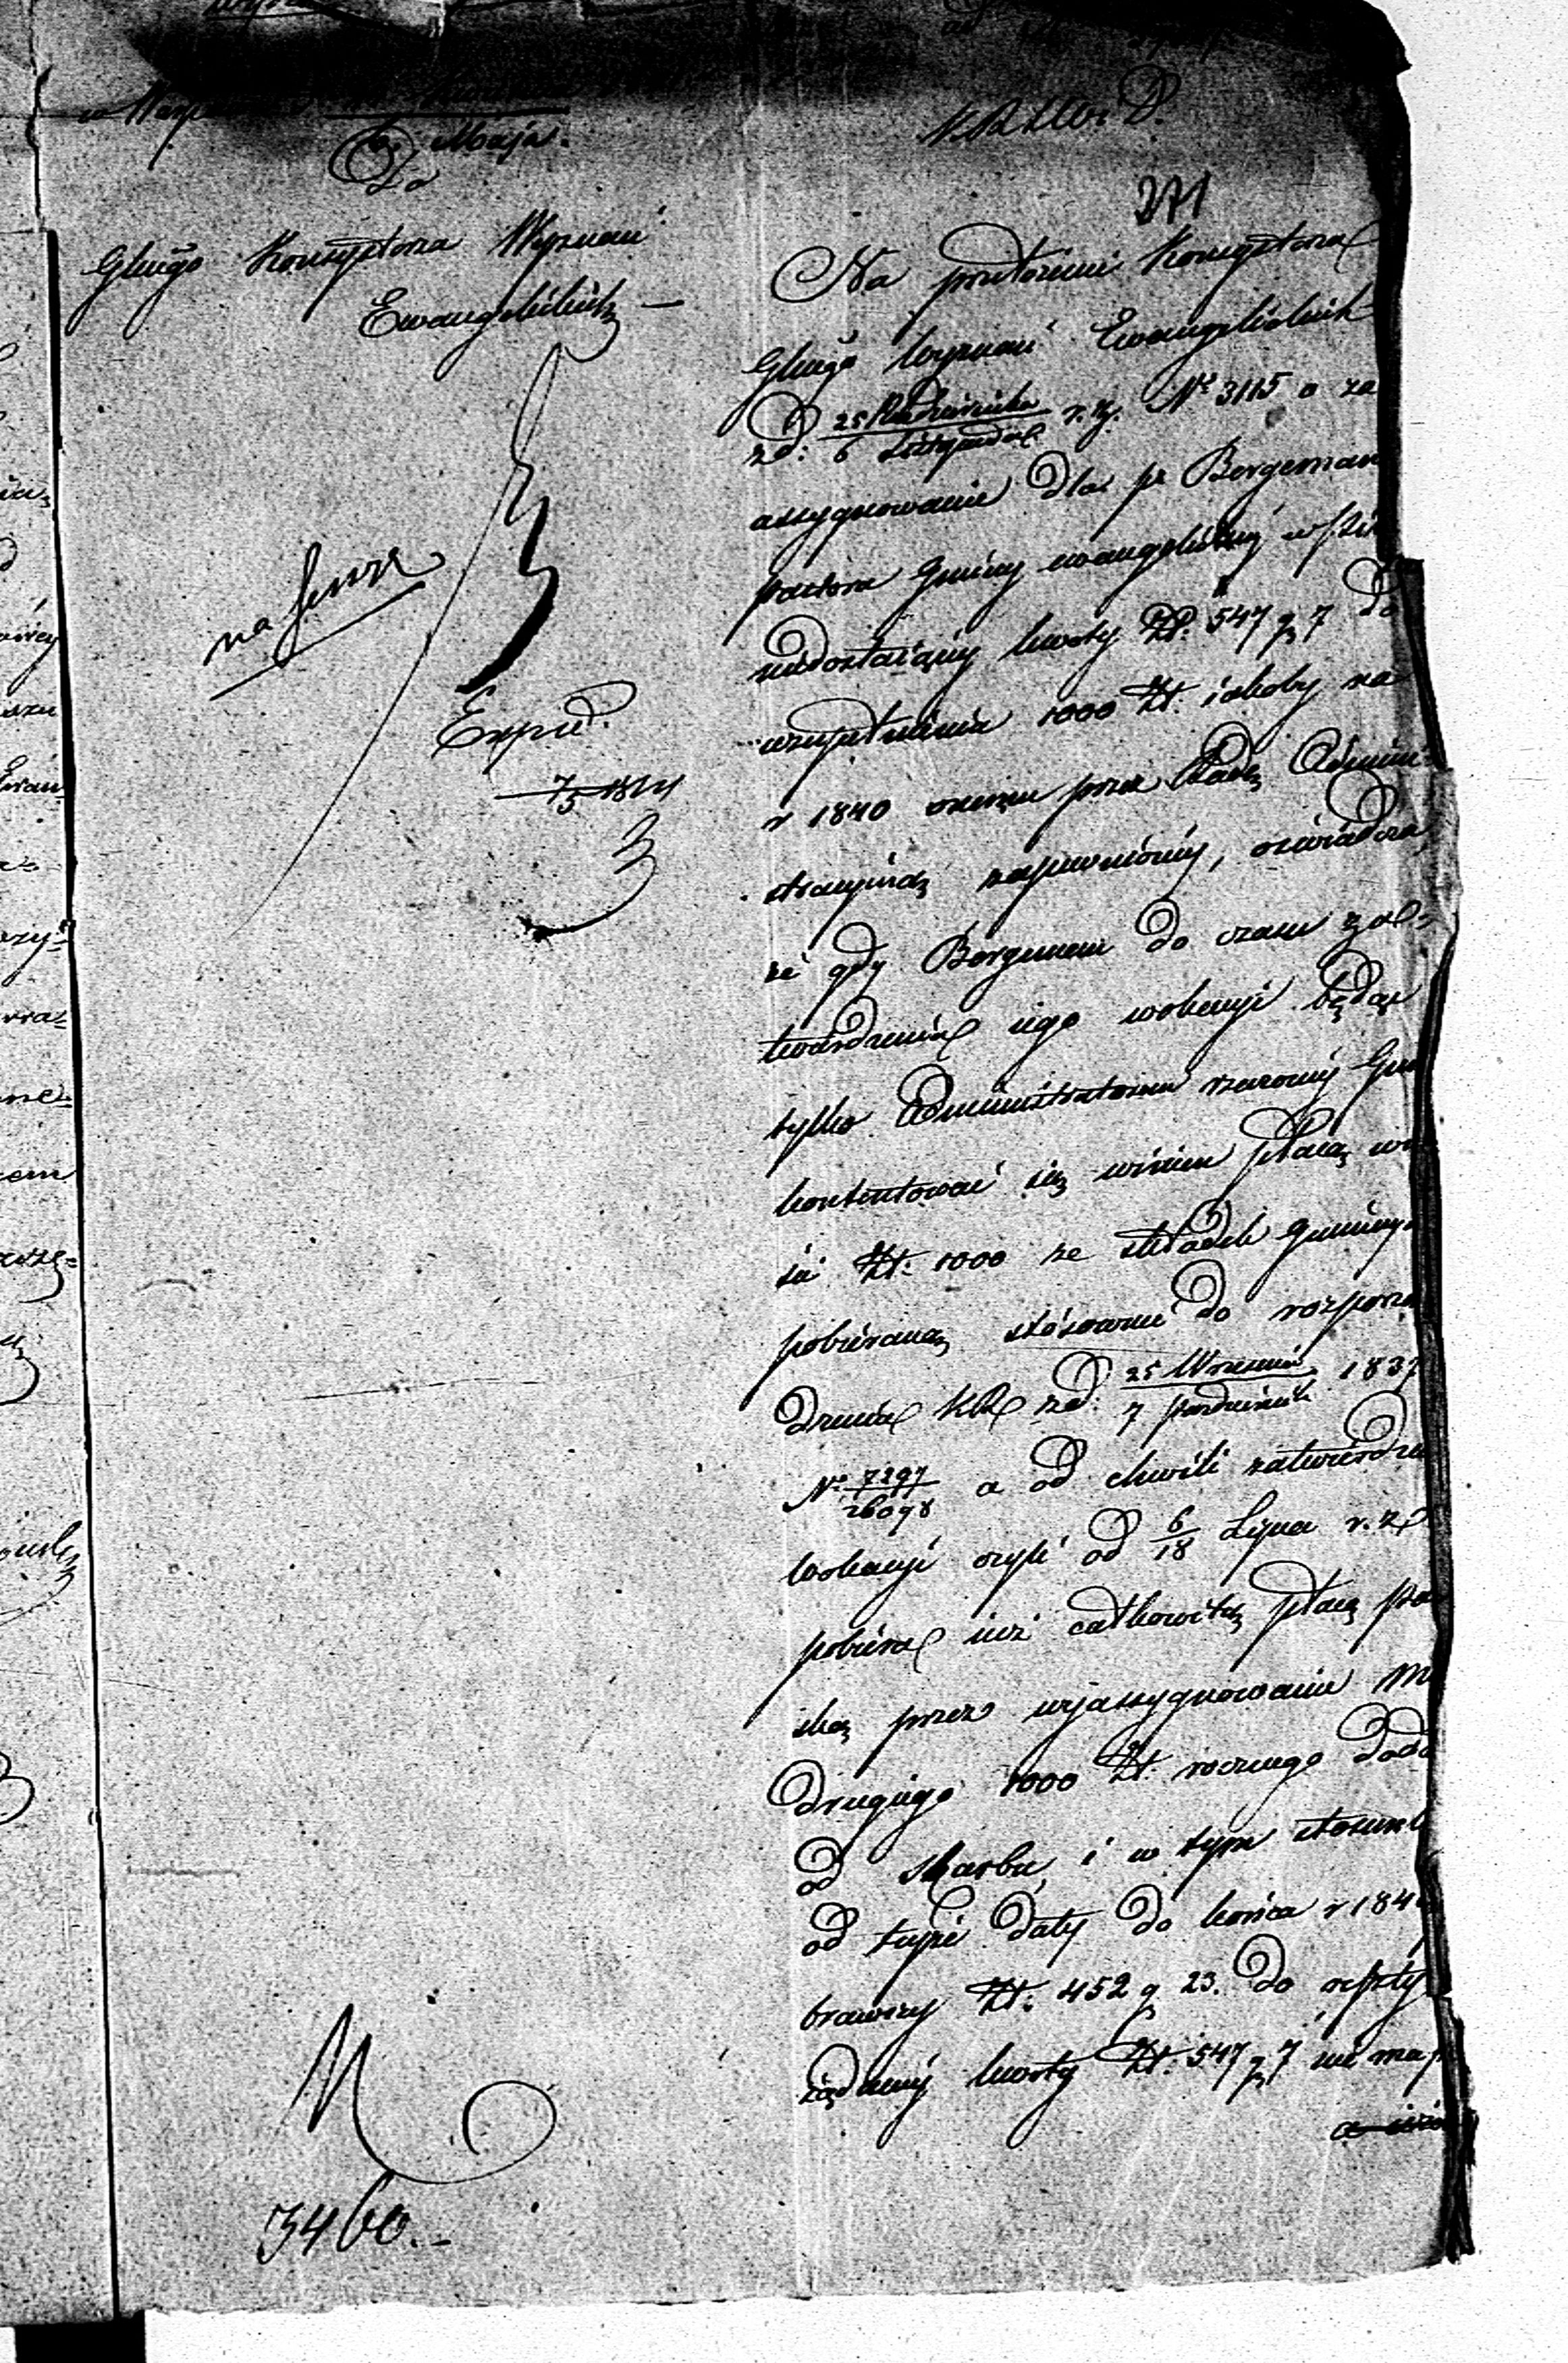 Maja.
Do
Głnego Konsystorza Wyznań
Ewangelickich
na
Exped.
7/5 1841
3460.
271
Na przełożenie Konsystorza
Głnego Wyznań Ewangelickich
zd: 25 Października / 6 Listopada r. z. Nº 3115 o za
assygnowanie dla px Bergeman
pastora Gminy ewangelickiej
niedostaiącej kwoty Zł. 547 g 7 do
uzupełnienia 1000 Zł. iakoby na
r 1840 onemu przez Radę Admini-
stracyiną zapewnionej, oświadcza,
że gdy Bergeman do czasu za-
twierdzenia iego wokacyi będąc
tylko Administratorem rzeczonej Gmi
kontentować się winien płacą w
Zł. 1000 ze składek gminnych
pobieraną stósownie do rozporzą
dzenia KR zd: 25 Września / 7 Październik 1837
Nº 7297/26098 a od chwili zatwierdze
wokacyi czyli od 6/18 Lipca r. z.
pobiera iuż całkowitą płacę pa
ską przez wyassygnowanie Mu
drugiego 1000 Zł. rocznego dod
od Skarbu, i w tym stosunk
od tejże daty do końca r 184
brawszy Zł. 452 g 23. do reszty
żądanej kwoty Zł. 547 g 7 nie ma p